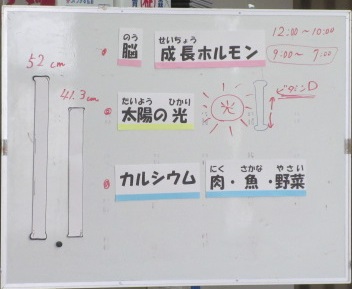 52cm
41.3cm
のう
脳
せいちょう
成長ホルモン
12:00～10:00
9:00～7:00
たいよう ひかり
太陽の光
光
ビタミンD
カルシウム
にく さかな やさい
肉・魚・野菜